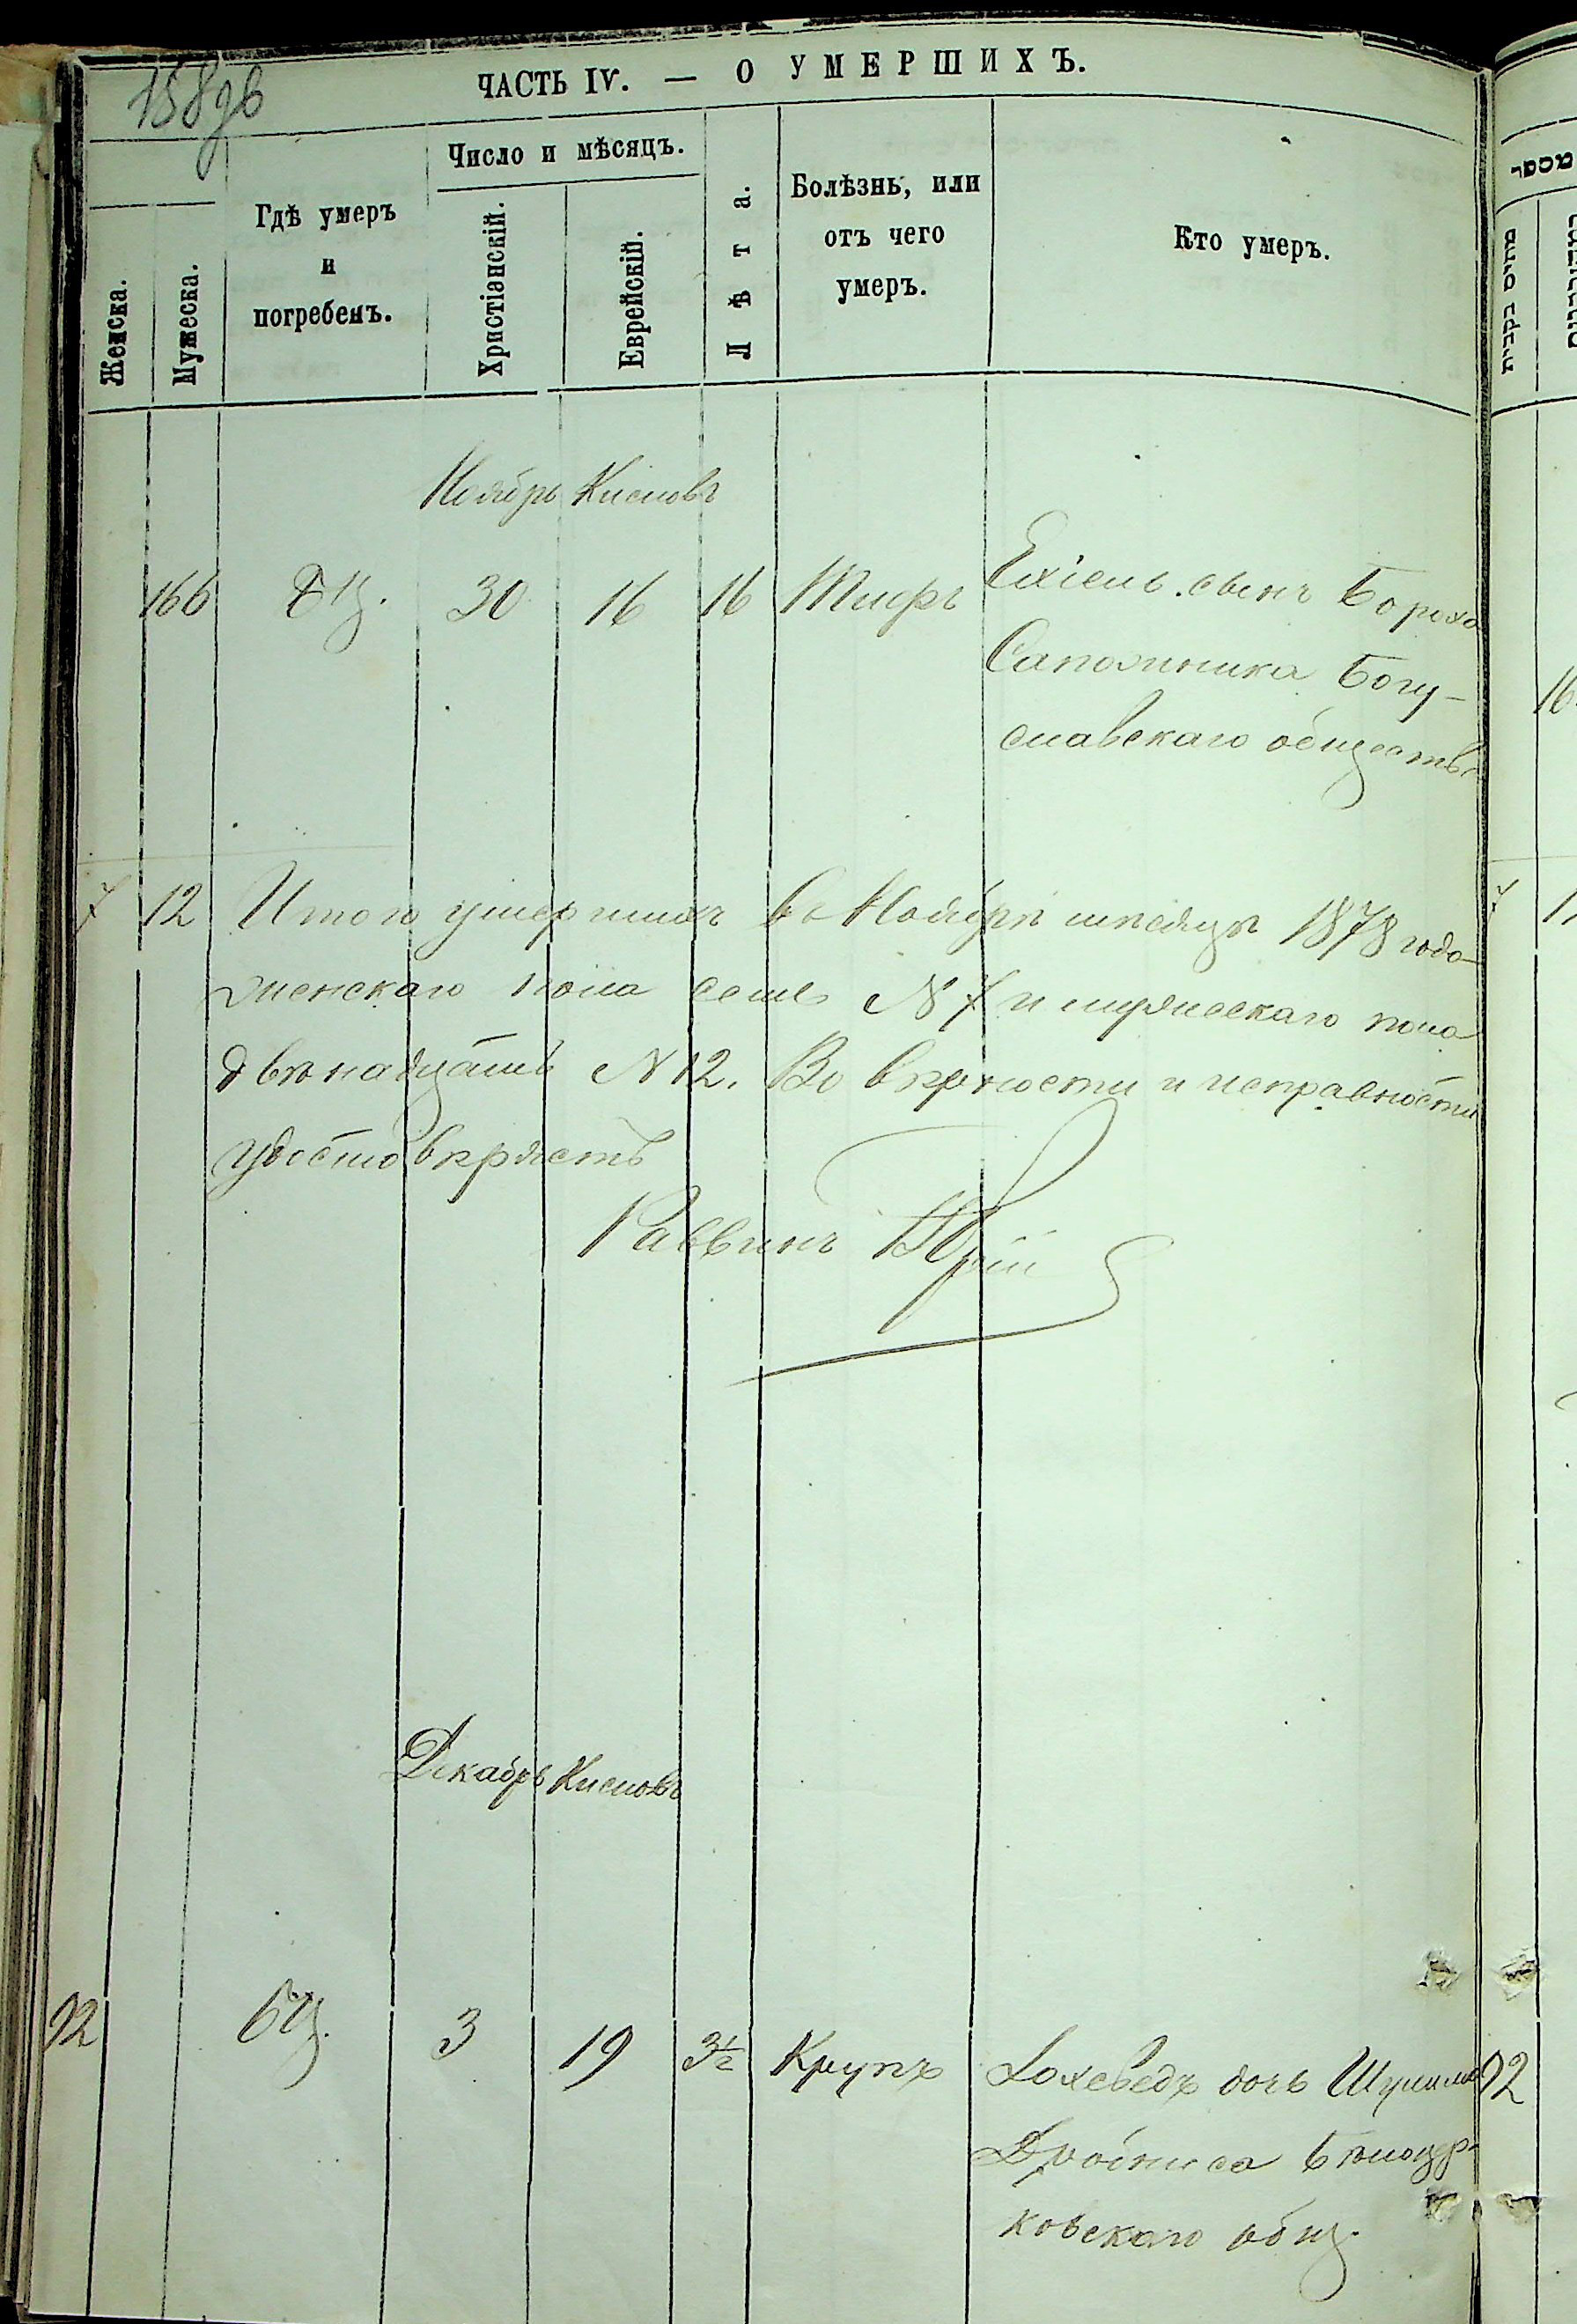 158 об
ЧАСТЬ IV. — О УМЕРШИХЪ.
Женска.
Мужеска.
Гдѣ умеръ
и
погребенъ.
Число и мѣсяцъ.
Христіанскій.
Еврейскій.
Лѣта.
Болѣзнь, или
отъ чего
умеръ.
Кто умеръ.
Ноябрь Кислевъ
166 БЦ. 30 16 16 Тифъ Ехіель сынъ Бороха
Сапожника Богу-
славскаго общества
7 12 Итого умершихъ въ Ноябрѣ мѣсяцѣ 1878 года
женскаго пола семь N 7 и мужескаго пола
двѣнадцать N 12. Въ вѣрности и исправности
удостовѣряетъ
Раввинъ
Декабрь Кислевъ
92 БЦ. 3 19 3½ Крупъ Iохеведъ дочь 92
Бѣлоцер-
ковскаго общ.